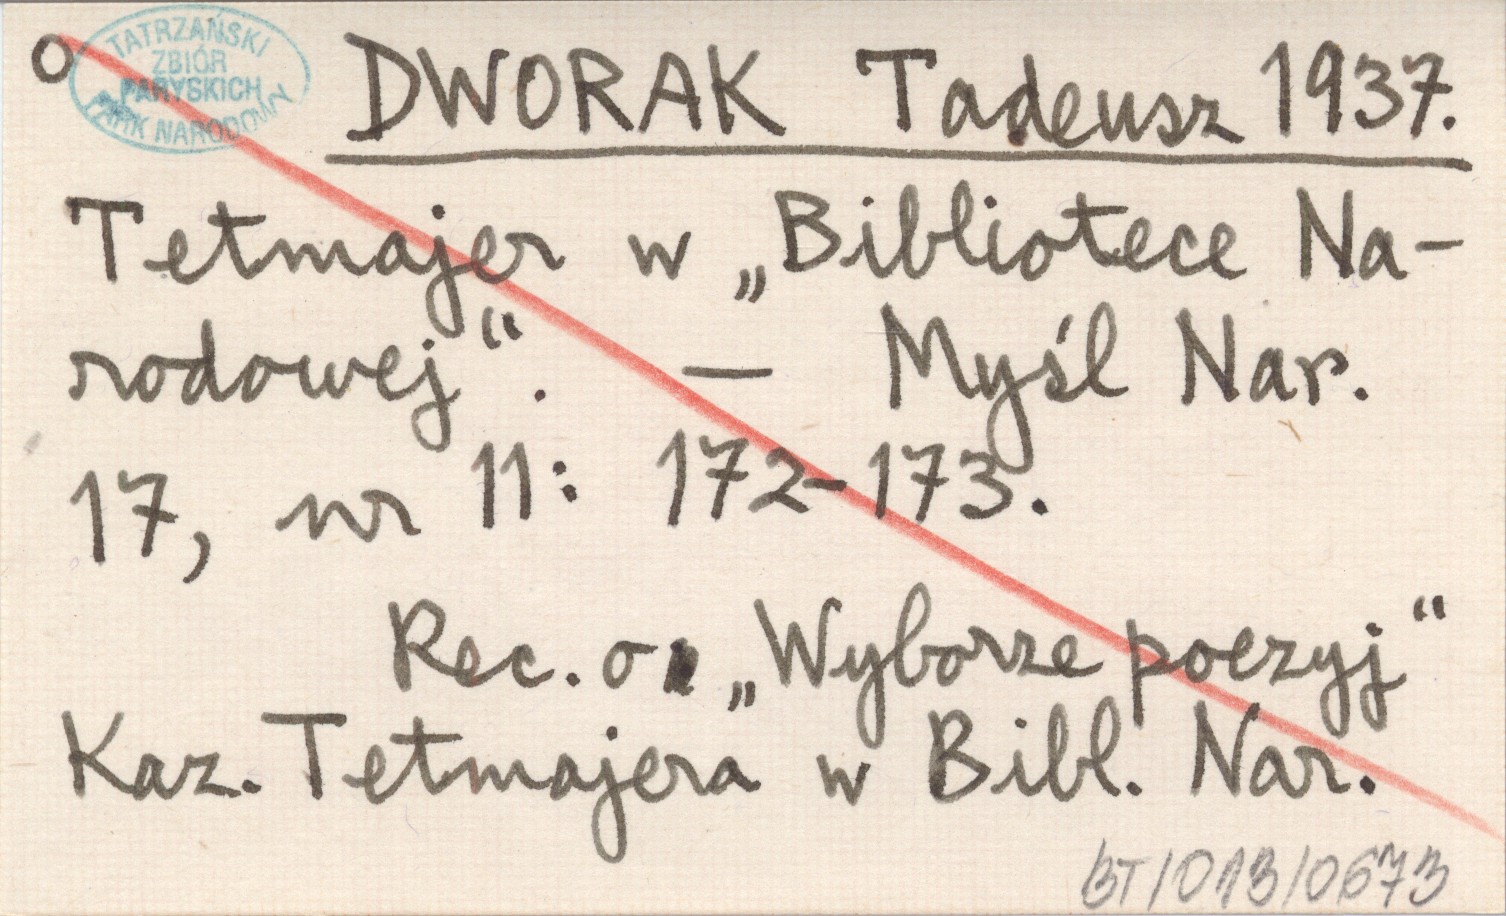 o
TATRZAŃSKI
ZBIÓR
PARYSKICH
PARK NARODOWY
DWORAK Tadeusz 1937.
Tetmajer w „Bibliotece Na-
rodowej“. — Myśl Nar.
17, nr 11: 172-173.
Rec. o „Wyborze poezyj“
Kaz. Tetmajera w Bibl. Nar.
BT/013/0673